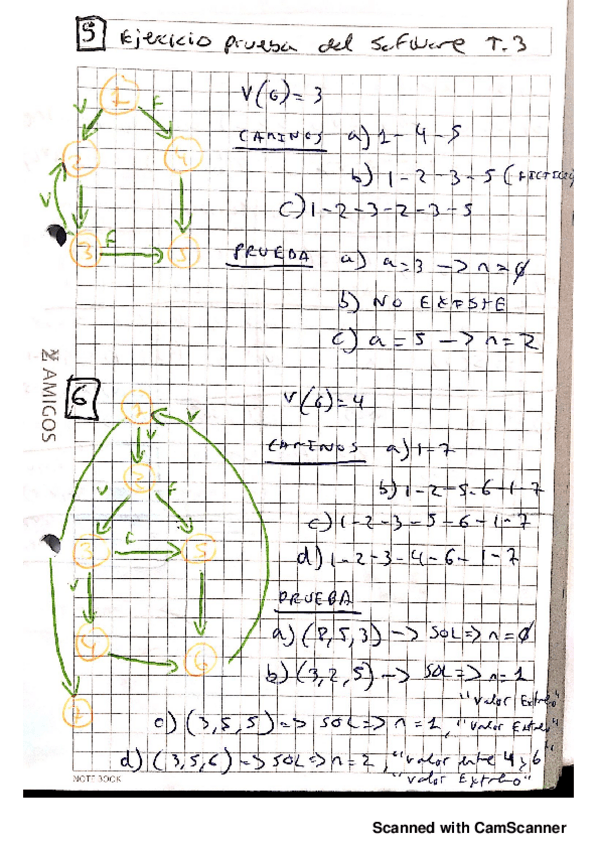 5 Ejercicio prueba del Software T.3
1
V
F
V(G)=3
CAMINOS a) 1-4-5
2
4
b) 1-2-3-5 (FICTICIO)
V
c) 1-2-3-2-3-5
3
F
5
PRUEBA a) a=3 -> n=0
b) NO EXISTE
c) a=5 -> n=2
AMIGOS
6
1
V
V
V(G)=4
CAMINOS a) 1-7
2
V
F
b) 1-2-5-6-1-7
c) 1-2-3-5-6-1-7
3
F
5
d) 1-2-3-4-6-1-7
V
PRUEBA
4
6
a) (8,5,3) -> SOL => n=0
b) (3,2,5) -> SOL => n=1
"Valor Extremo"
7
c) (3,5,5) => SOL => n=1, "Valor Extremo"
d) (3,5,6) => SOL => n=2, "valor entre 4 y 6"
"valor Extremo"
NOTEBOOK
Scanned with CamScanner